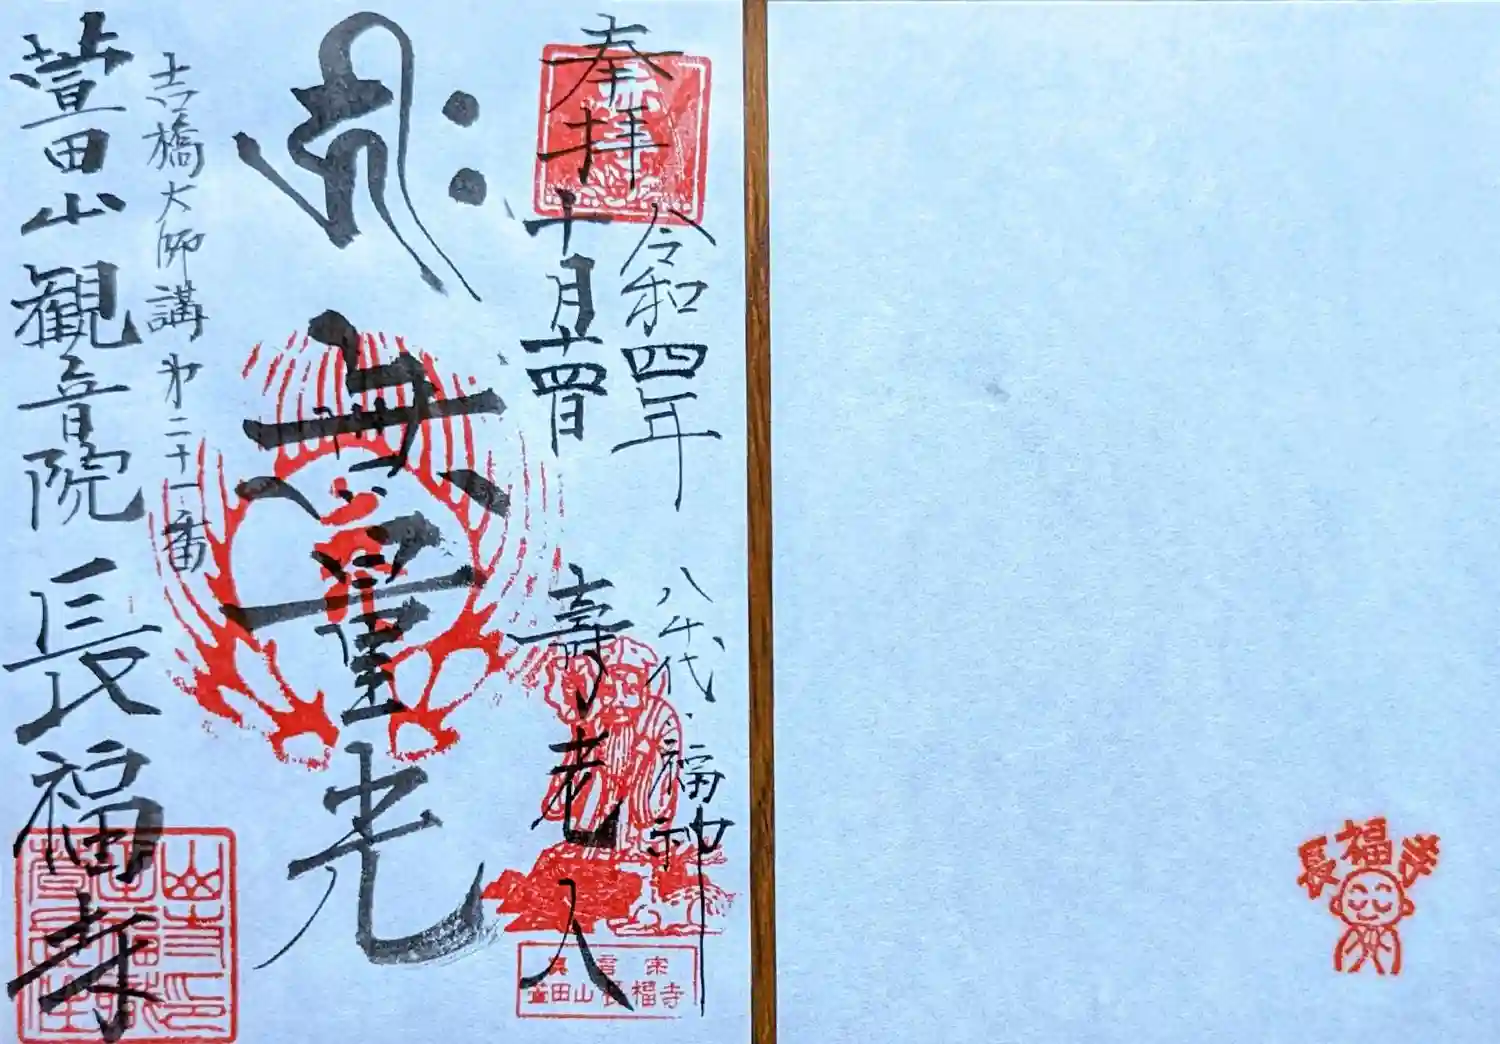 奉拝
令和四年
十月十四日
八千代福神
壽老人
無量光
吉橋大師講第二十一番
萱田山観音院長福寺
真言宗
萱田山長福寺
長福寺